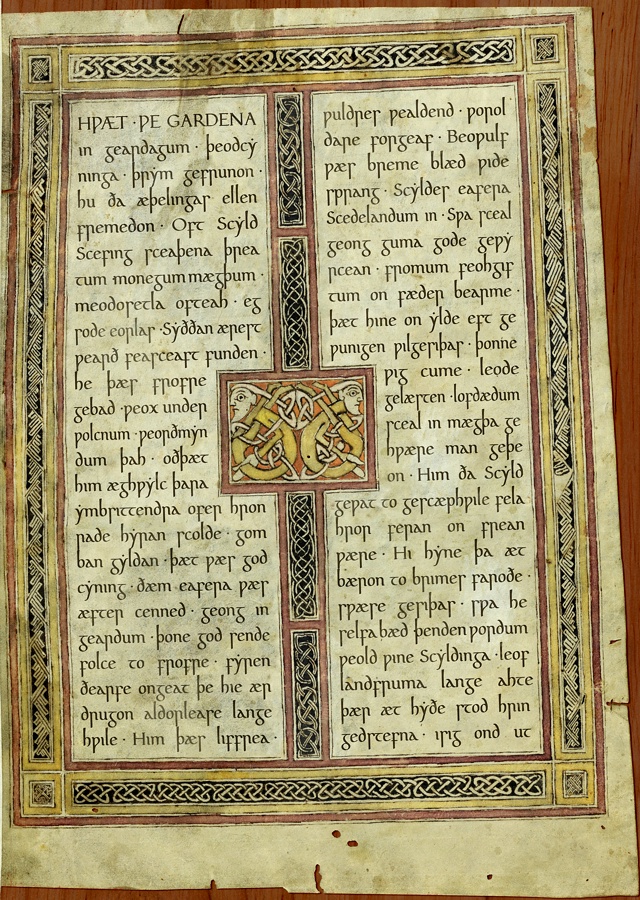 HǷÆT · ǷE GARDENA
in geardagum · þeodcy
ninga · þrym gefrunon ·
hu ða æþelingas ellen
fremedon · Oft Scyld
Scefing sceaþena þrea
tum monegum mægþum ·
meodosetla ofteah · eg
sode eorlas · Syððan ærest
ƿearð feasceaft funden ·
he þæs frofre
gebad · ƿeox under
ƿolcnum · ƿeorðmyn
dum þah · oðþæt
him æghƿylc þara
ymbsittendra ofer hron
rade hyran scolde · gom
ban gyldan · þæt ƿæs god
cyning · ðæm eafera ƿæs
æfter cenned · geong in
geardum · þone god sende
folce to frofre · fyren
ðearfe ongeat þe hie ær
drugon aldorlease lange
hƿile · Him þæs liffrea ·
ƿuldres ƿealdend · ƿorol
dare forgeaf · Beoƿulf
ƿæs breme blæd ƿide
sprang · Scyldes eafera
Scedelandum in · Sƿa sceal
geong guma gode geƿy
rcean · fromum feohgif
tum on fæder bearme ·
þæt hine on ylde eft ge
ƿunigen ƿilgesiþas · þonne
ƿig cume · leode
gelæsten · lofdædum
sceal in mægþa ge
hƿære man geþe
on · Him ða Scyld
geƿat to gescæphƿile fela
hror feran on frean
ƿære · Hi hyne þa æt
bæron to brimes faroðe ·
sƿæse gesiþas · sƿa he
selfa bæd þenden ƿordum
ƿeold ƿine Scyldinga · leof
landfruma lange ahte
þær æt hyðe stod hrin
gedstefna · isig ond ut